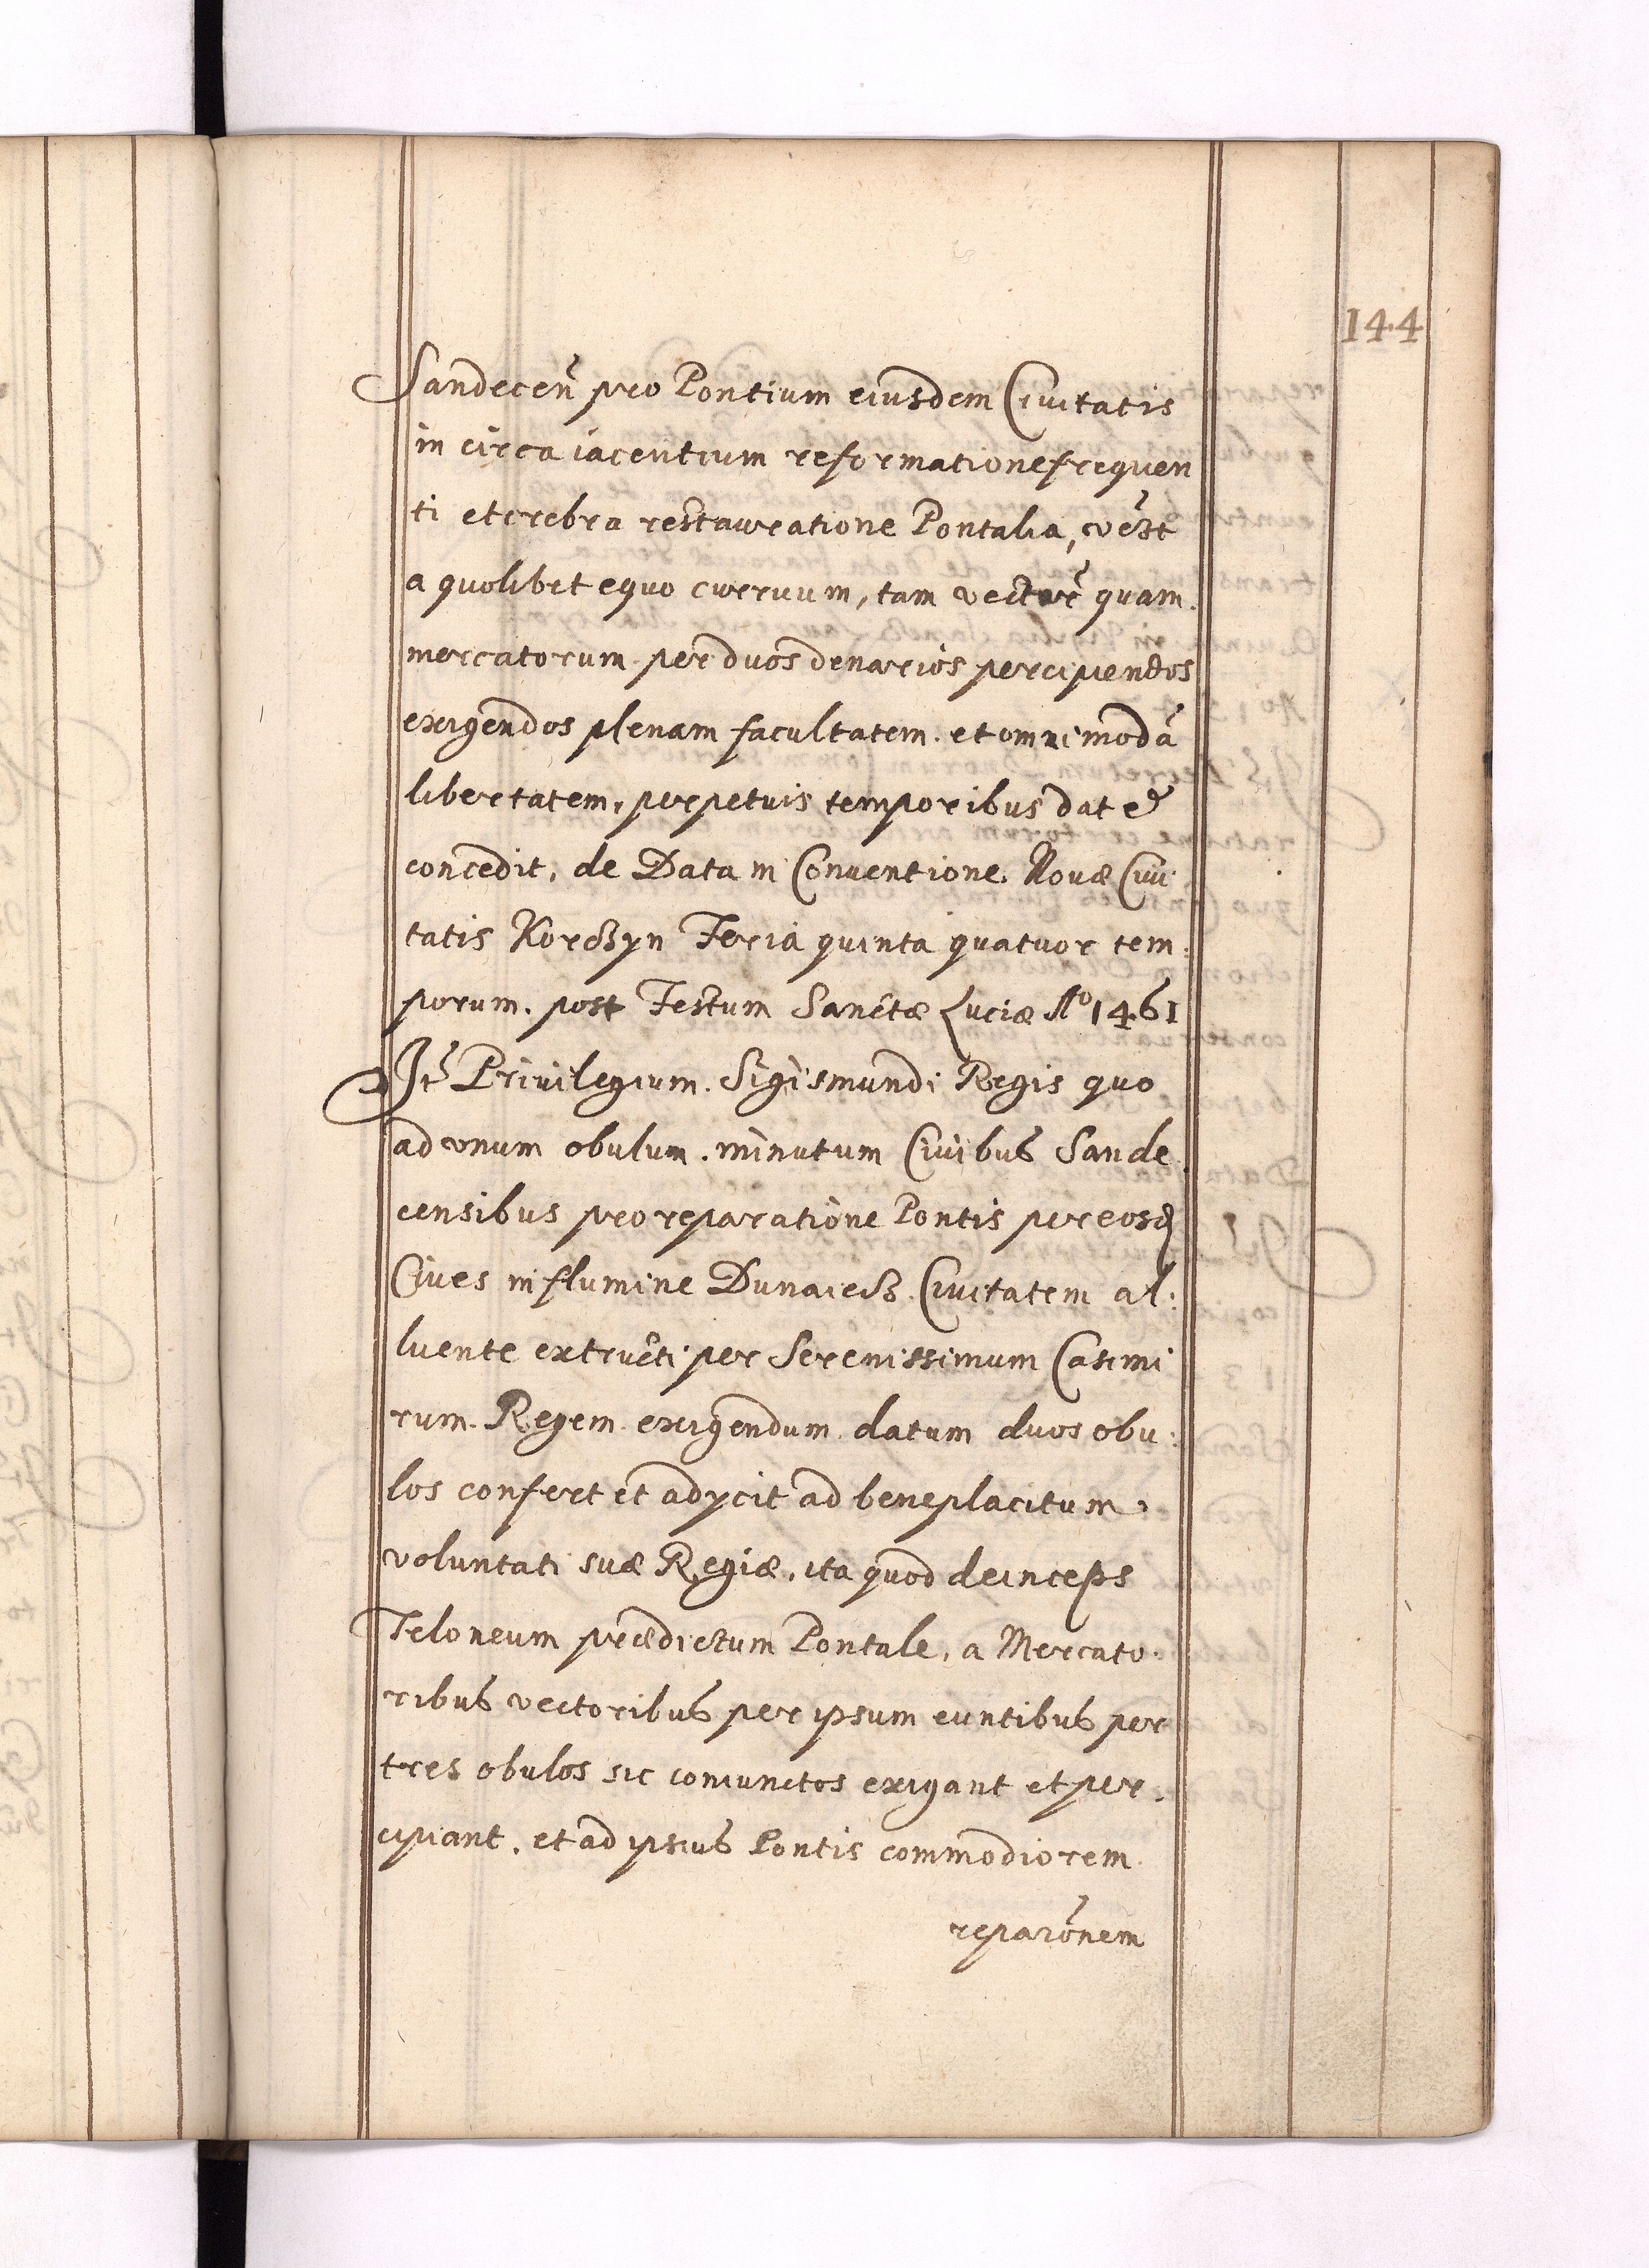 144
Sandecen̄ pro Pontium eiusdem Ciuitatis
in circa iacentium reformatione frequen
ti et crebra restauratione Pontalia, vest
a quolibet equo curruum, tam vector̄ quam
mercatorum per duos denarios percipiendos
exigendos plenam facultatem et omnimodā
libertatem, perpetuis temporibus dat et
concedit, de Data in Conuentione Nouæ Ciui
tatis Korczyn Feria quinta quatuor tem:
porum post Festum Sanctæ Luciæ Aº 1461
It̄ Priuilegium Sigismundi Regis quo
ad vnum obulum minutum Ciuibus Sande
censibus pro reparatione Pontis per eosd̄
Ciues in flumine Dunaiecz Ciuitatem al:
luente extructi per Serenissimum Casimi
rum Regem exigendum datum duos obu:
los confert et adycit ad beneplacitum
voluntati suæ Regiæ, ita quod deinceps
Teloneum prædictum Pontale, a Mercato
ribus vectoribus per ipsum euntibus per
tres obulos sic coniunctos exigant et per
cipiant, et ad ipsius Pontis commodiorem
reparōnem